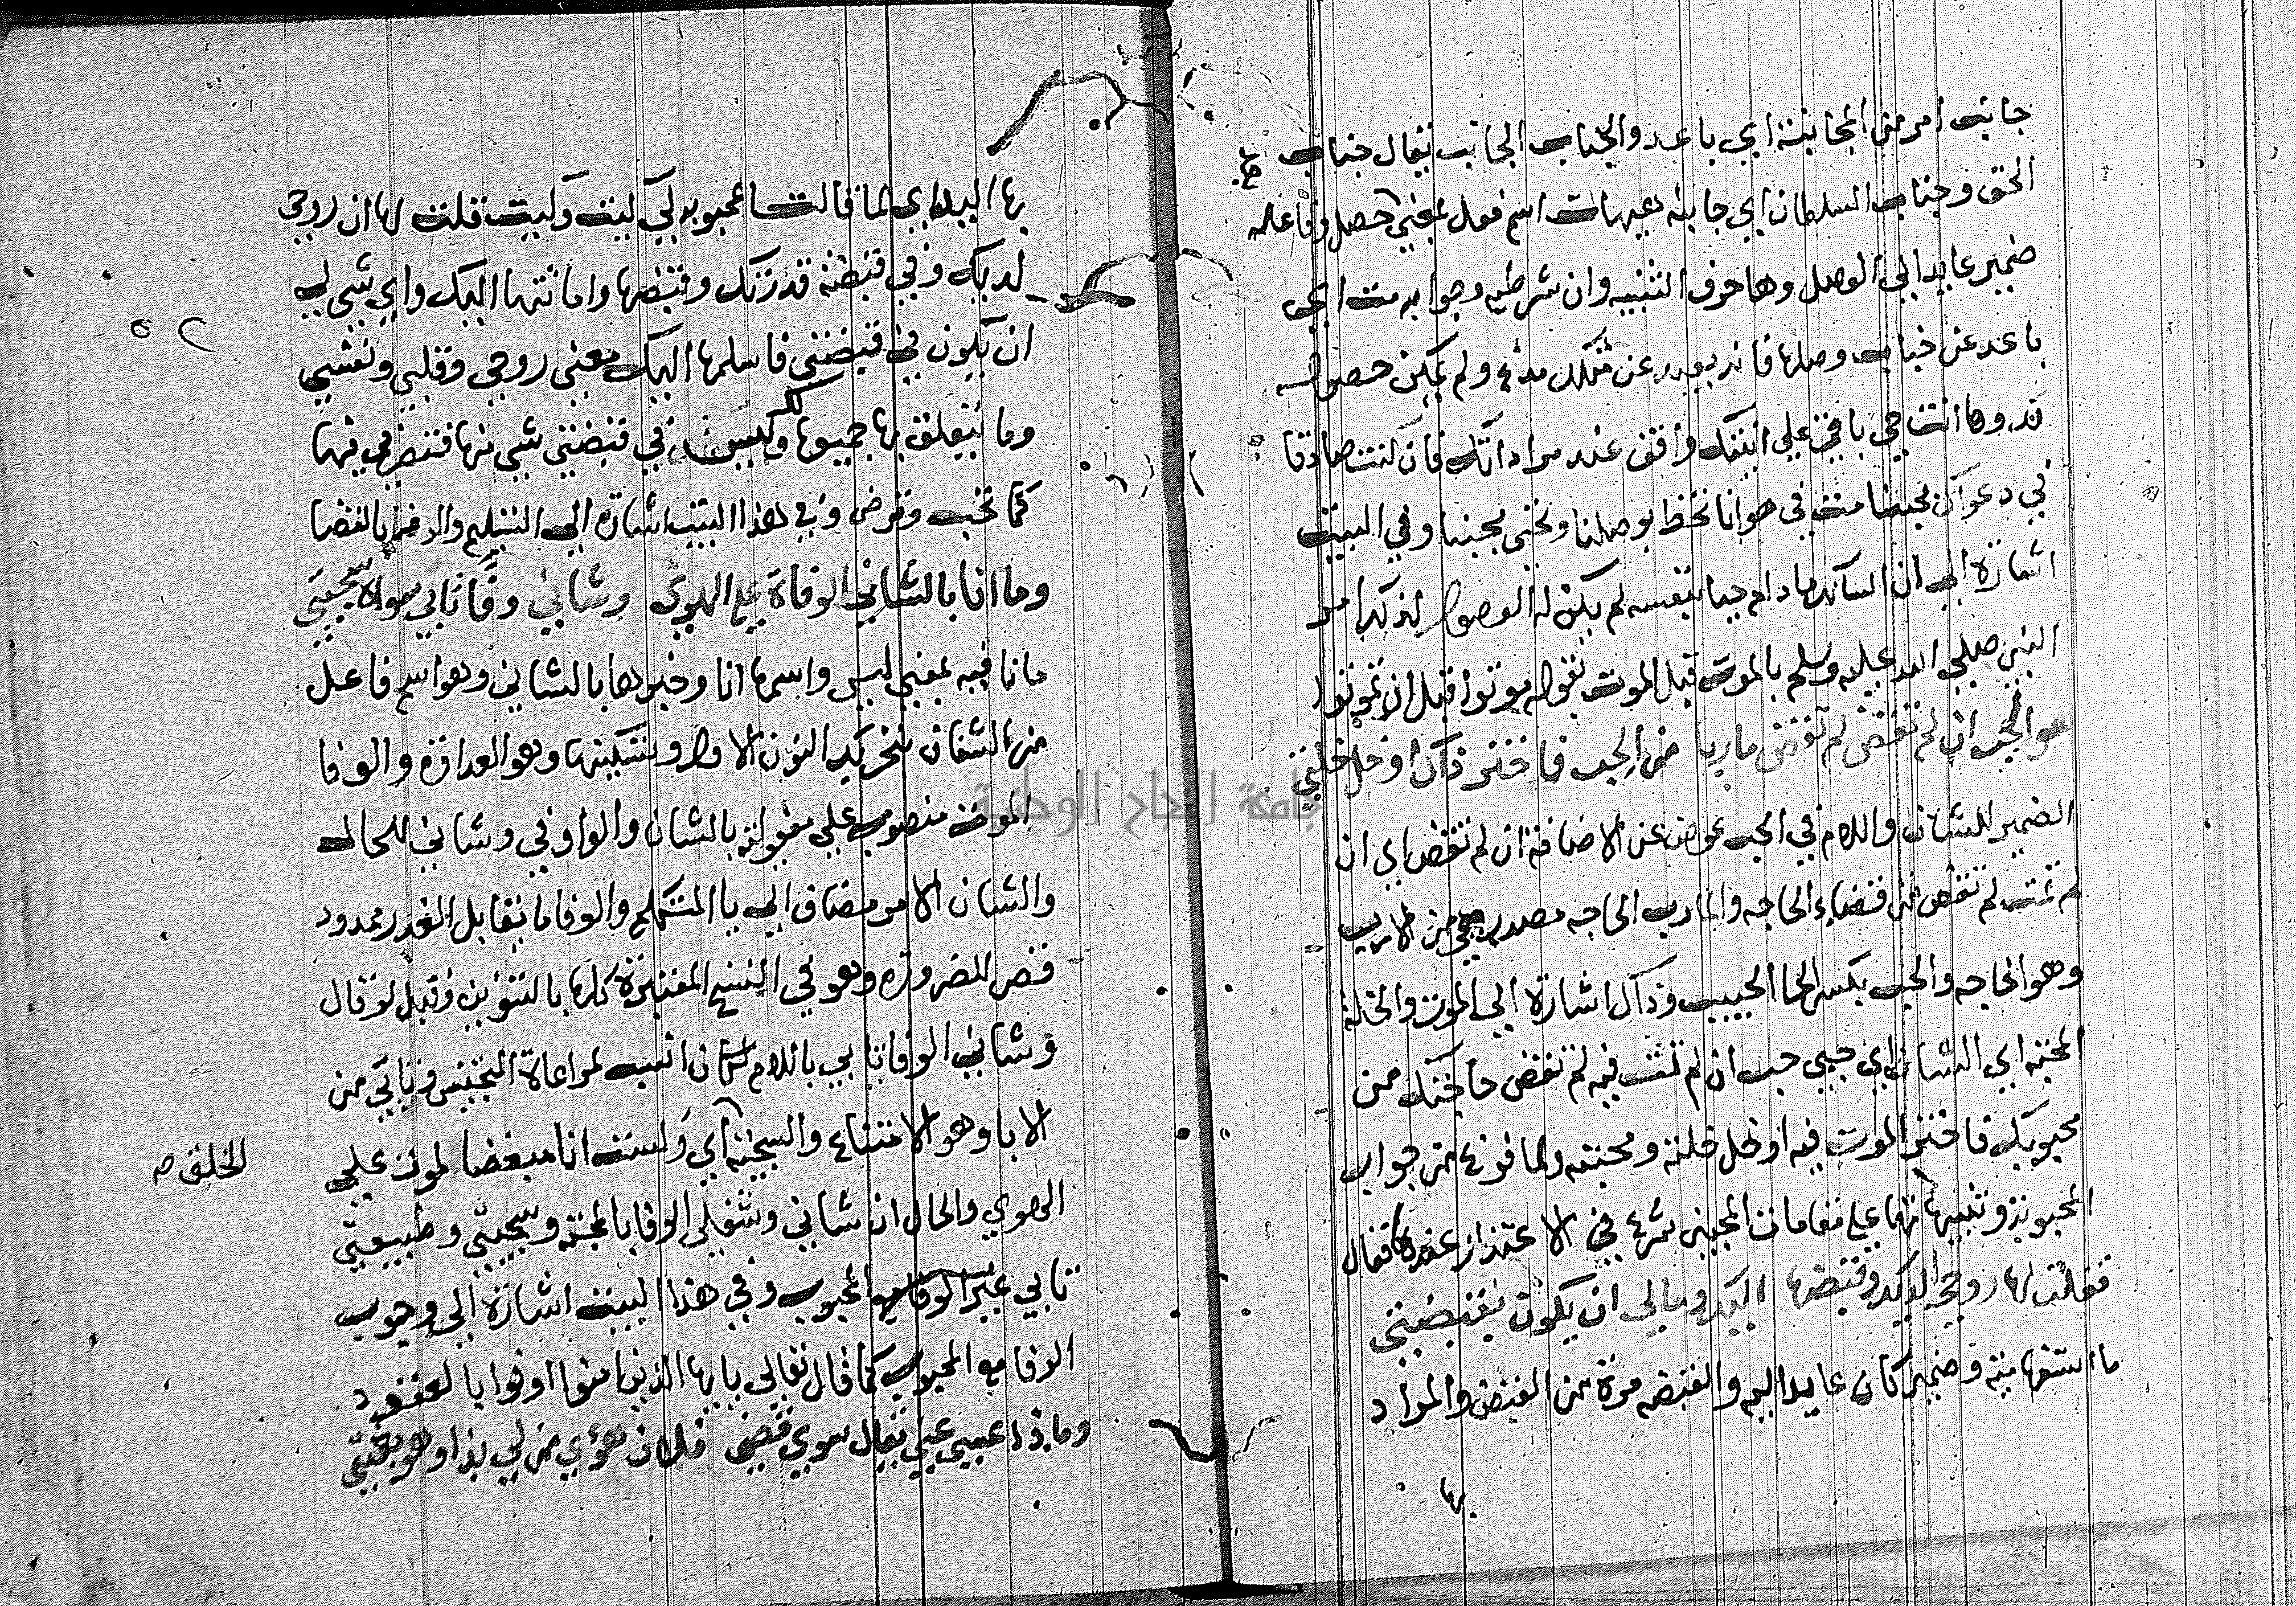 جانب امر من المجانبة اي باعد والجناب الجانب يقال جناب
الحق وجناب السلطان اي جانبه هيهات اسم فعل بمعني حصل وفاعله
ضمير عايد الي الوصل وها حرف التنبيه وان شرطيه وجوابه مت اي
باعد عن جناب وصلها فانه بعيد عن مثلك مدع ولم يمكن حصوله
وها انت حي باقي علي انيتك واقف عند مراداتك فان كنت صادقا
في دعواك بحبنا مت في هوانا تحظ بوصلنا وتحيي بحبنا وفي البيت
اشارة الي ان السالك ما دام حيا بنفسه لم يكن له الوصول لذلك امر
النبي صلي الله عليه وسلم بالموت قبل الموت بقوله موتوا قبل ان تموتوا
هو الحب ان لم تقض لم تقض ماربا من الحب فاختر ذاك او خل خلتي
الضمير للشان واللام في الحب عوض عن الاضافة ان لم تقض اي ان
لم تمت لم تقض من قضاء الحاجه والمارب الحاجه مصدر ميمي من الارب
وهو الحاجه والحب بكسر الحا الحبيب وذاك اشارة الي الموت والخلة
المحبة اي الشان اي حبي حب ان لم تمت فيه لم تقض حاجتك من
محبوبك فاختر الموت فيه او خل خلته ومحبته ولما فرغ من جواب
المحبوبة وتنبيهاتها علي مقامات المحبين شرع في الاعتذار عنده فقال
فقلت لها روحي لديك وقبضها اليك ومالي ان يكون بقبضتي
ما استفهامية وضمير كان عايد اليه والقبضه مرة من القبض والمراد
بها
بها اليد اي لما قالت المحبوبه لي كيت وكيت قلت لها ان روحي
لديك وفي قبضة قدرتك وقبضها واماتتها اليك واي شي لي
ان يكون في قبضتي فاسلمها اليك معني روحي وقلبي ونفسي
وما يتعلق بها جميعها لك وليس في قبضتي شي منها فتصرفي فيها
كما تحب وترضي وفي هذا البيت اشارة الي التسليم والرضا بالقضا
وما انا بالشاني الوفاة علي الهوي وشاني وفا تابي سواه سجيتي
ما نافيه بمعني ليس واسمها انا وخبرها بالشاني وهو اسم فاعل
من الشنان بتحريك النون الاولي وتسكينها وهو العداوة والوفا
الموت منصوب علي مفعولية بالشان والواو في وشاني للحال
والشان الامر مضاف الي يا المتكلم والوفا ما يقابل الغدر ممدود
قصر للضرورة وهو في النسخ المعتبرة كلها بالتنوين وقيل لو قال
وشاني الوفا تابي باللام لكان انسب لمراعاة التجنيس وتابي من
الابا وهو الامتناع والسجية اي ولست انا مبغضا لموت علي
الخلق صح
الهوي والحال ان شاني وشغلي الوفا بالمحبة وسجيتي وطبيعتي
تابي غير الوفا مع المحبوب وفي هذا البيت اشارة الي وجوب
الوفا مع المحبوب كما قال تعالي يا ايها الذين امنوا اوفوا بالعقود
وماذا عسي عني يقال سوي قضي فلان هوي من لي بذا وهو بغيتي
جامعة النجاح الوطنية